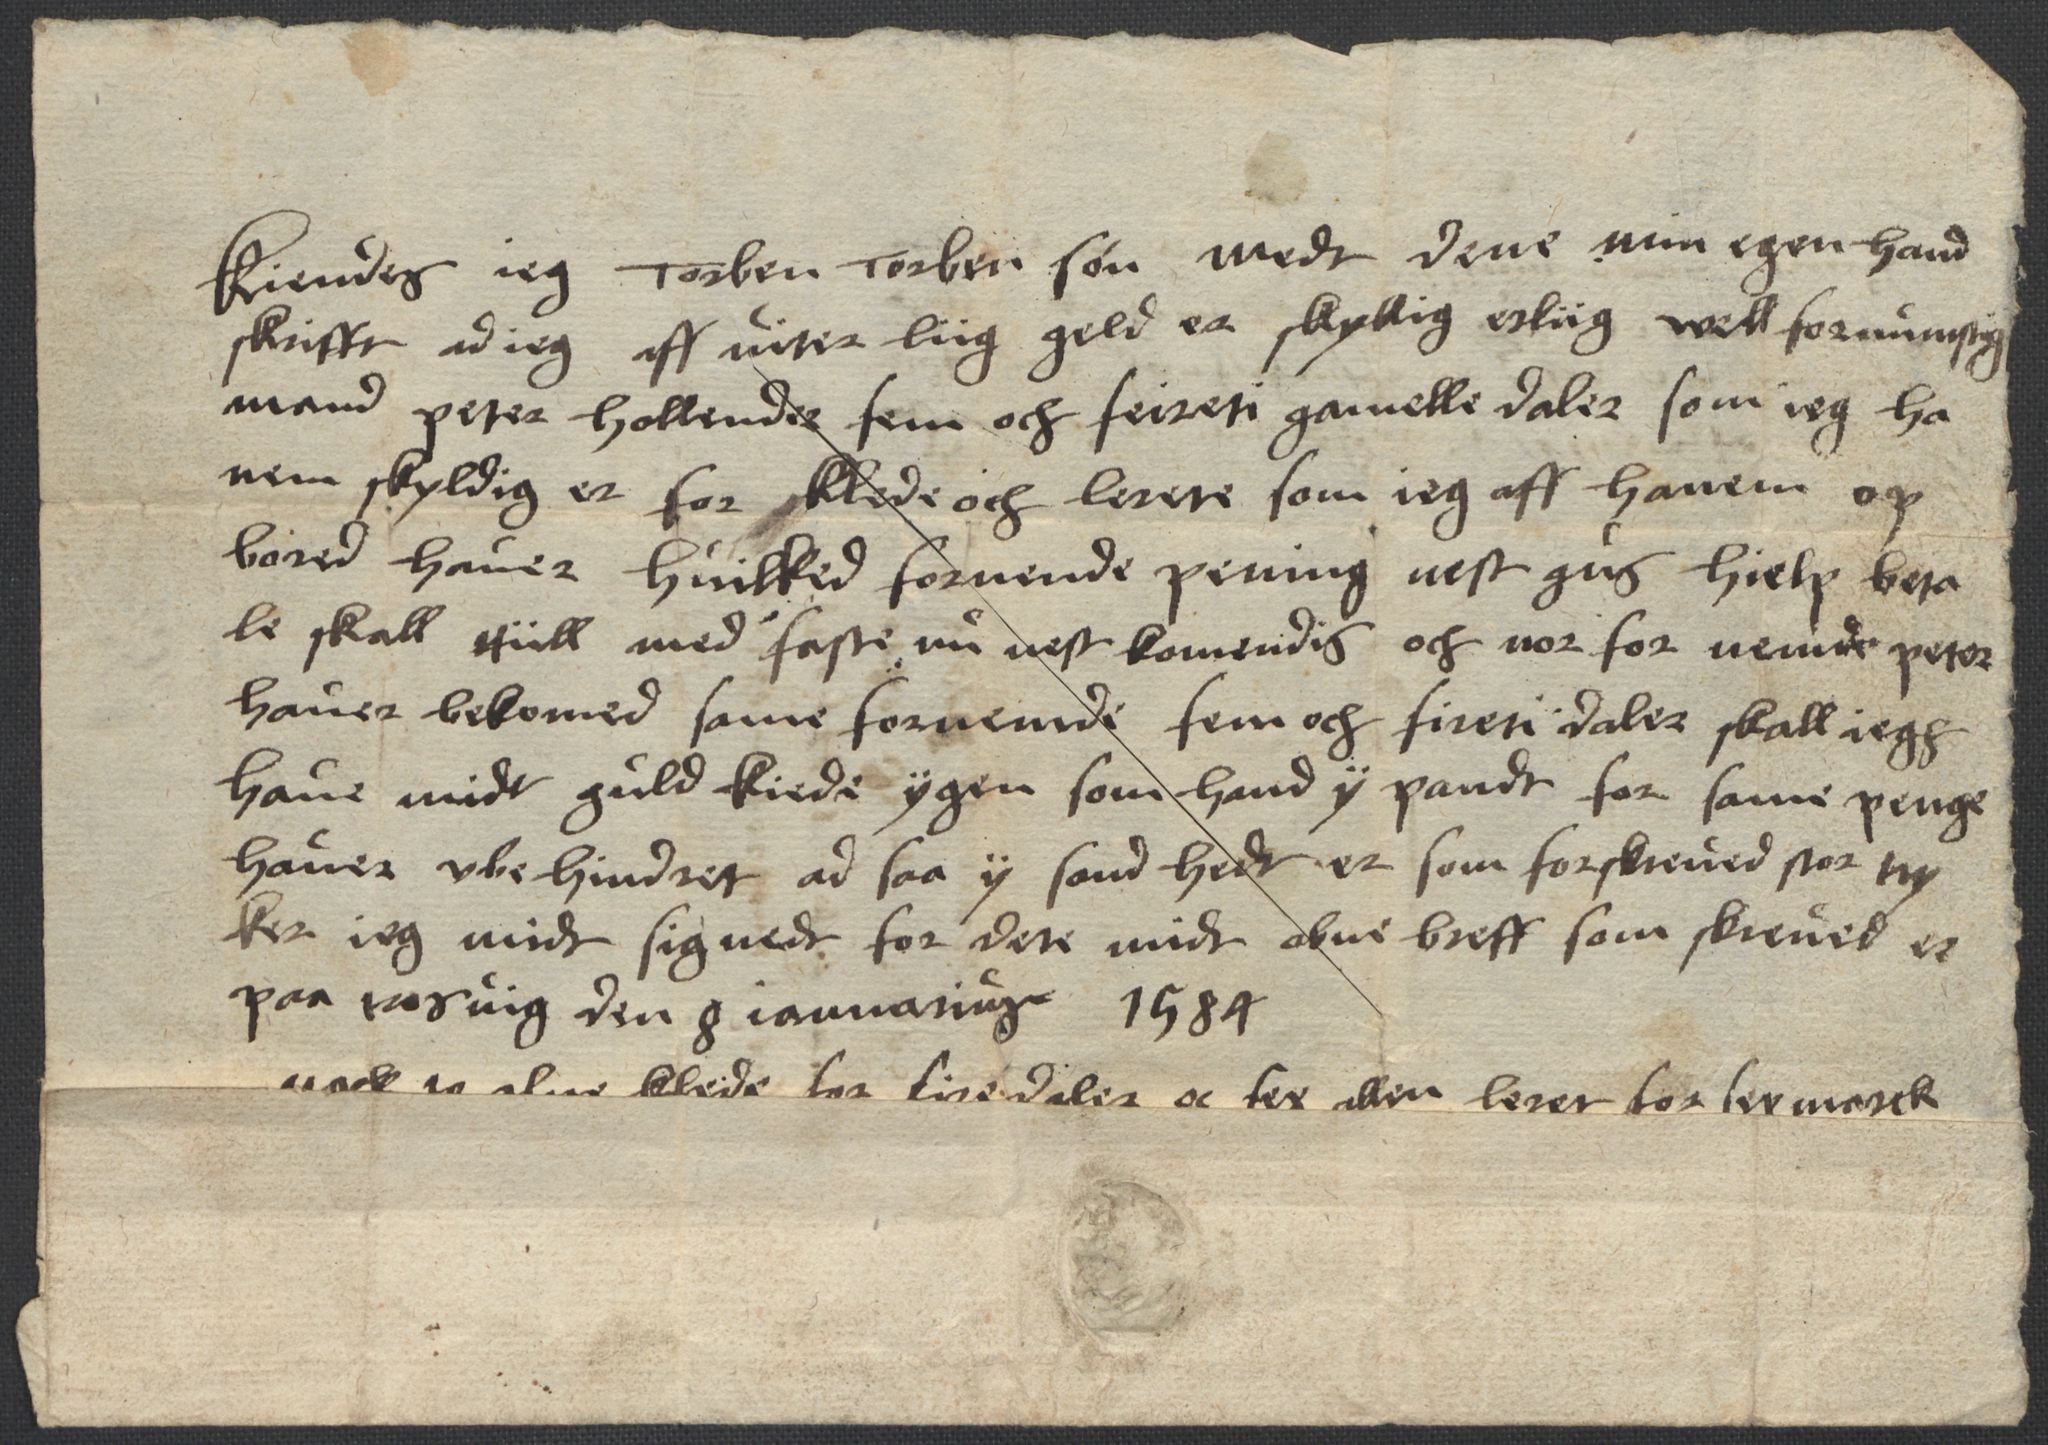 Kiendes ieg Torben Torben sön medt dene min egen hand
skrifft ad ieg aff uiter liig geld er skyllig erliig well fornumstig
mand peter hollender fem och feireti gamelle daler som ieg ha
nem skyldig er for klede och lerete som ieg aff hanem op
bored hauer huilked fornende pening nest gus hielp beta
le skall tiill med faste nu nest komendis och nor for nemde peter
hauer bekomed same fornemde fem och fireti daler skall iegh
haue midt guld kiede ygen som hand y pandt for same penge
hauer vbe hindret ad saa y sand hedt er som forskreued stor try
ker ieg midt signedt for dete midt abne breff som skreued er
paa den 8 iannarius 1584
nock alne klede for fire daler oc sex allen leret for sex marck